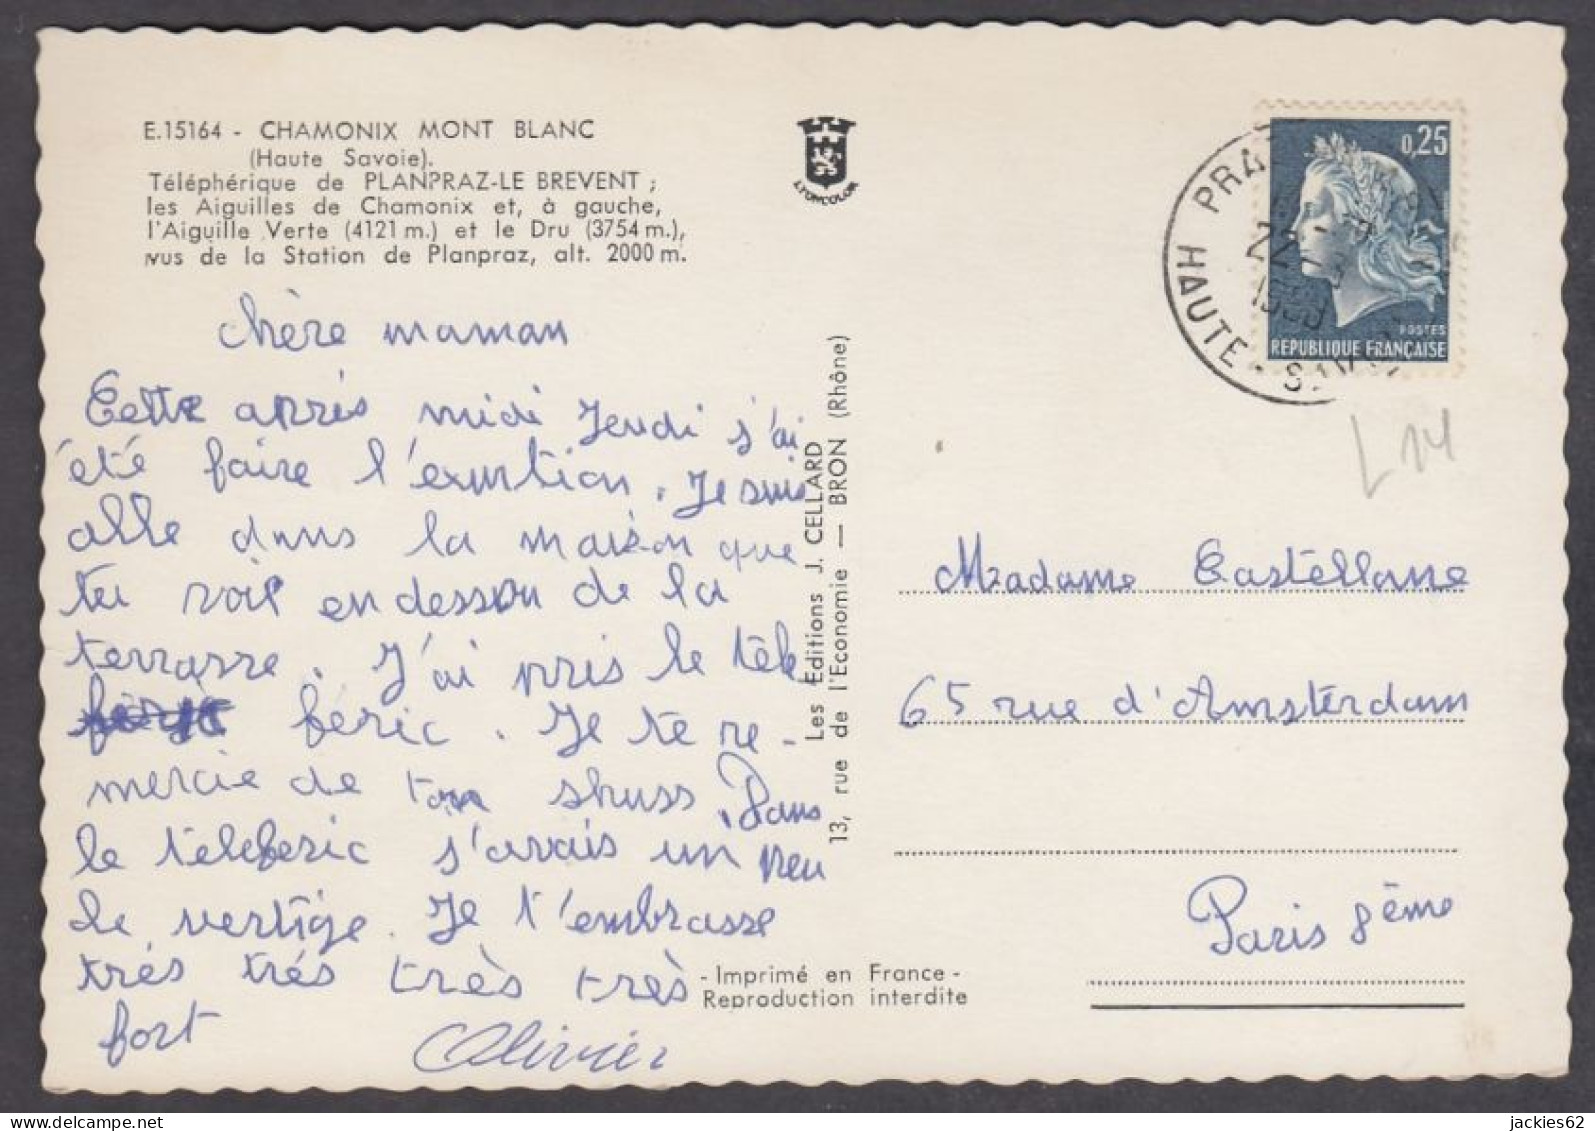 E.15164 - CHAMONIX MONT BLANC
(Haute Savoie).
Téléphérique de PLANPRAZ-LE BREVENT ;
les Aiguilles de Chamonix et, à gauche,
l'Aiguille Verte (4121 m.) et le Dru (3754 m.),
vus de la Station de Planpraz, alt. 2000 m.
LYONCOLOR
0,25
POSTES
REPUBLIQUE FRANÇAISE
PRAZ
22
HAUTE - SAVOIE
L14
chère maman
Cette après midi Jeudi j'ai
été faire l'exurtion. Je suis
allé dans la maison que
tu voit en dessou de la
terrasse. J'ai pris le télé
féric. Je te re-
mercie de ton shuss. Dans
le téléferic j'avais un peu
de vertige. Je t'embrasse
trés trés très très
fort Olivier
Les Editions J. CELLARD
13, rue de l'Economie — BRON (Rhône)
Madame Castellane
65 rue d'Amsterdam
Paris 8ème
- Imprimé en France -
Reproduction interdite
delcampe.net
jackies62